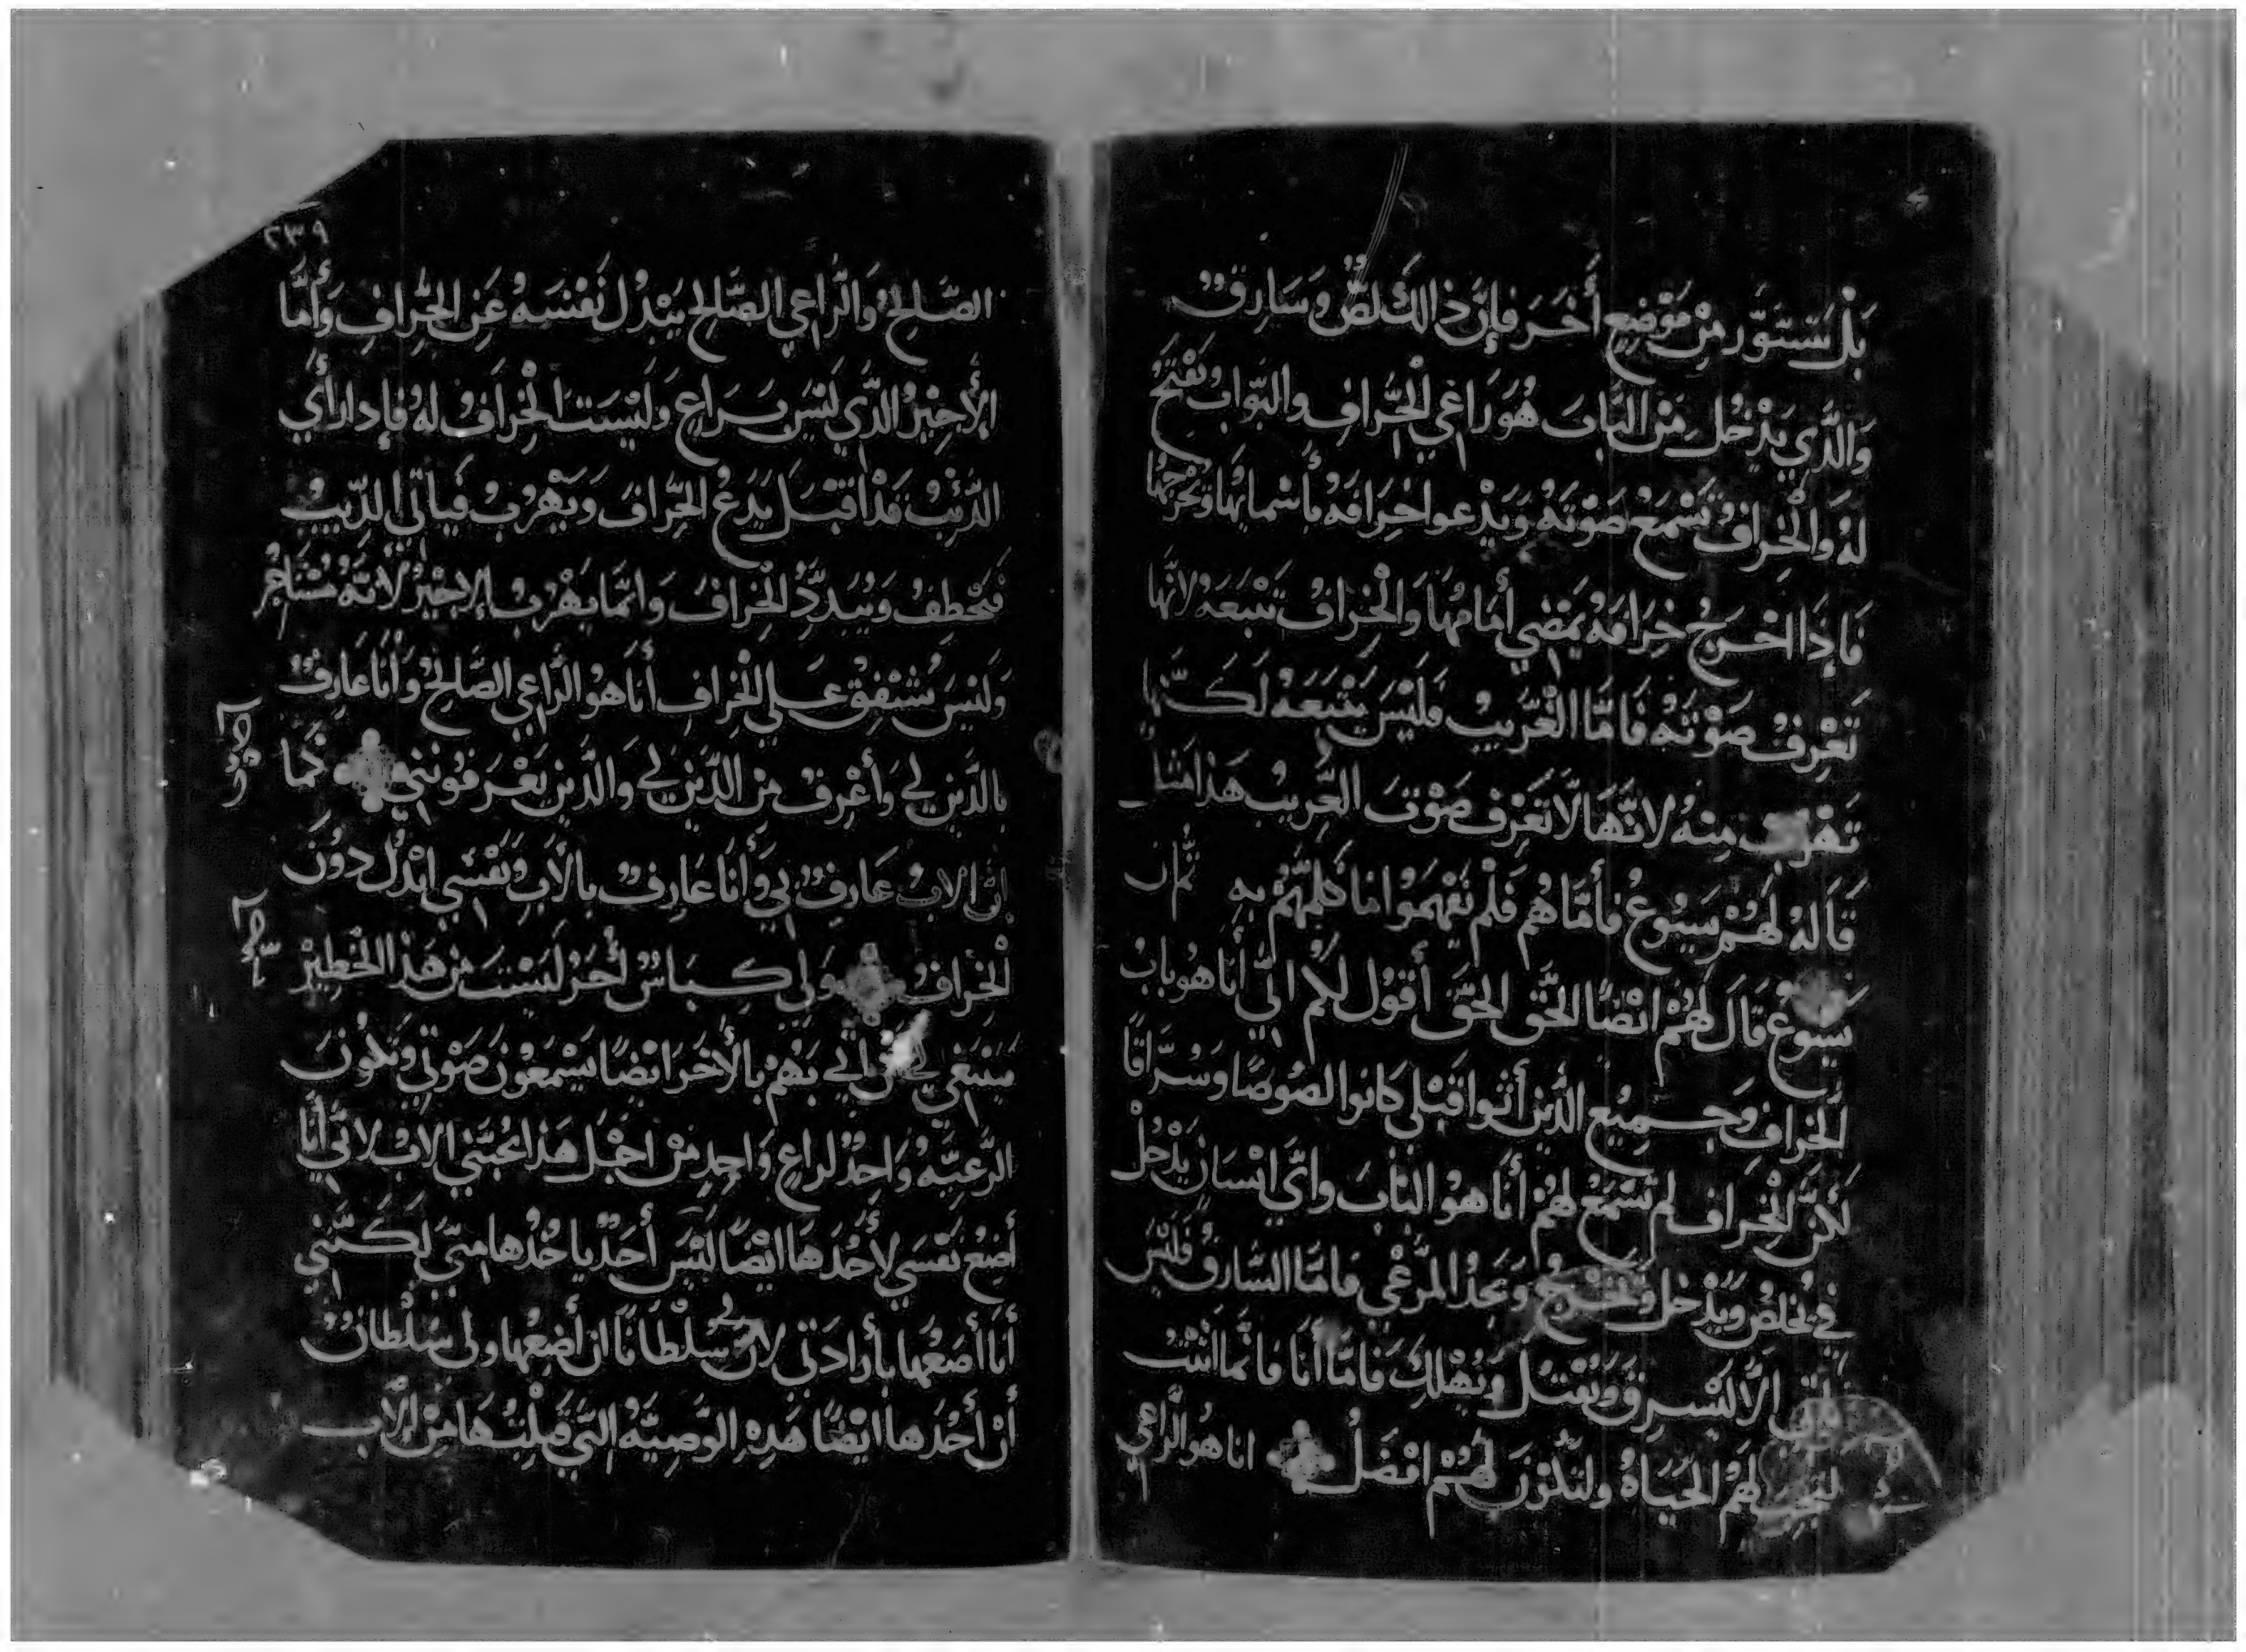 بَلْ يَتَسَوَّر مِنْ مَوْضِعٍ أَخَرَ فَإِنَّ ذَالكَ لصٌّ وَسَارِقٌ
وَالَّذِي يَدْخُل مِنَ البَّابَ هُوَ رَاعِي الْخِرَافِ والبَوّاب يَفْتَحُ
لهُ وَالْخِرَافُ تَسْمَعْ صَوْتَهُ وَيَدْعوا خِرَافَهُ بأَسْمايها وَيُخْرجُها
فَإِذَا اخْرَجَ خِرَافَهُ يَمْضِي أَمَامهَا وَالْخِرَافُ تَتْبَعَهُ لانَّها
تَعْرِفُ صَوْتَهُ فَامَّا الْغَرِيبُ فَلَيْسَ يَتْبَعَهُ لَكنَّها
تَهْرب مِنهُ لانَّهَا لَا تَعْرِفْ صَوْتَ الغَّرِيبُ هَذا مَثل
قَالهُ لَهُمْ يَسُوعُ فأمَّا هُم فَلَمْ يَفْهَمُوا مَا كَلمَّهُمْ بِهِ ثُمَّ ان
يَسُوعُ قَالَ لهُمْ ايْضًا الحَّق الحَقَ أقُول للُم انِّي أنَا هو بابُ
الْخِرافِ وَجَمِيع الَّذين أتَوا قَبْلي كَانوا لصُوصًا وسُرَّاقًا
لَكنَّ الْخِراف لم تَسْمَعْ لهُمْ أنَا هو البَاب وايَّ انسَان يَدْخُلْ
فيّ يخْلصُ وَيَدْخل وَيخْرجُ وَيَجدُ المَرْعَي فامَّا السَّارِقُ فَلَيْسَ
ياتي الَّا ليَسْرِقَ وَيَقْتُل وَيُهْلِكَ فَامَّا أنَا فَانَّما اتَيْت
لتكون لهُم الحَيَاهُ ولتكوْنَ لهُمْ افضَلُ انا هُو الرَّاعي
٢٣٩
الصَّالِحُ وَالرَّاعي الصَّالِح يَبْدُل نَفْسَهُ عَنِ الْخِّرافِ وَأمَّا
الأَجِيْرُ الَّذي لَيْسَ بِرَاعٍ وَلَيْسَت الْخِرَافُ لهُ فإدا رَأي
الذِّيْبُ قدْ اقبَلَ يَدَعُ الخِّرَافَ وَيَهْرُبُ فَيَاتي الدِّيبُ
فيَخْطِفُ وَيُبَدِّدُ الْخِرَافَ وَانمَّا يَهْرُبُ الاجِيْرُ لانَّهُ مُسْتَاجَرٌ
وَلَيْسَ يُشْفِقْ عَلى الْخِرَافِ أَنَا هو الرَّاعِي الصَّالِحُ وَأنَا عَارِفٌ
بالَّذينَ لي وَأعْرِفُ مَن الَّذينَ لي وَالَّذينَ يَعْرَفُونَنِي كما
انَّ الابْ عَارِفٌ بي وَأنَا عَارِفٌ بالأَبِ وَنَفْسَي ابْدُل دوُنَ
الْخِرافُ وَلى كِبَاشٌ أُخَرْ لَيْسَت مِنْ هَذِ الحَظِيْرَ
يَنْبَغي لي أن آتي بَهُمْ بالأخَرَ ايْضًا يَسْمَعُونَ صَوْتي وتَكُون
الرَّعِيَّهُ وَاحدٌ لرَاعٍ وَاحِدٍ مِنْ اجْل هَذا يحُبَّني الابْ لانِّي أنَا
أضَعُ نَفْسَي لأخُدَهَا ايْضًا لَيْسَ أَحَدٌ ياخُدُها مِنّي لَكَنَّني
أنَا أضَعُها بأرادَتي لانَّ لي سُلْطَانًا ان أضَعها ولى سُلْطانٌ
أنْ أخُدَها ايْضًا هَدِهِ الوَّصِيَّهُ التَّي قَبِلْتُهَا مِنَ الآب